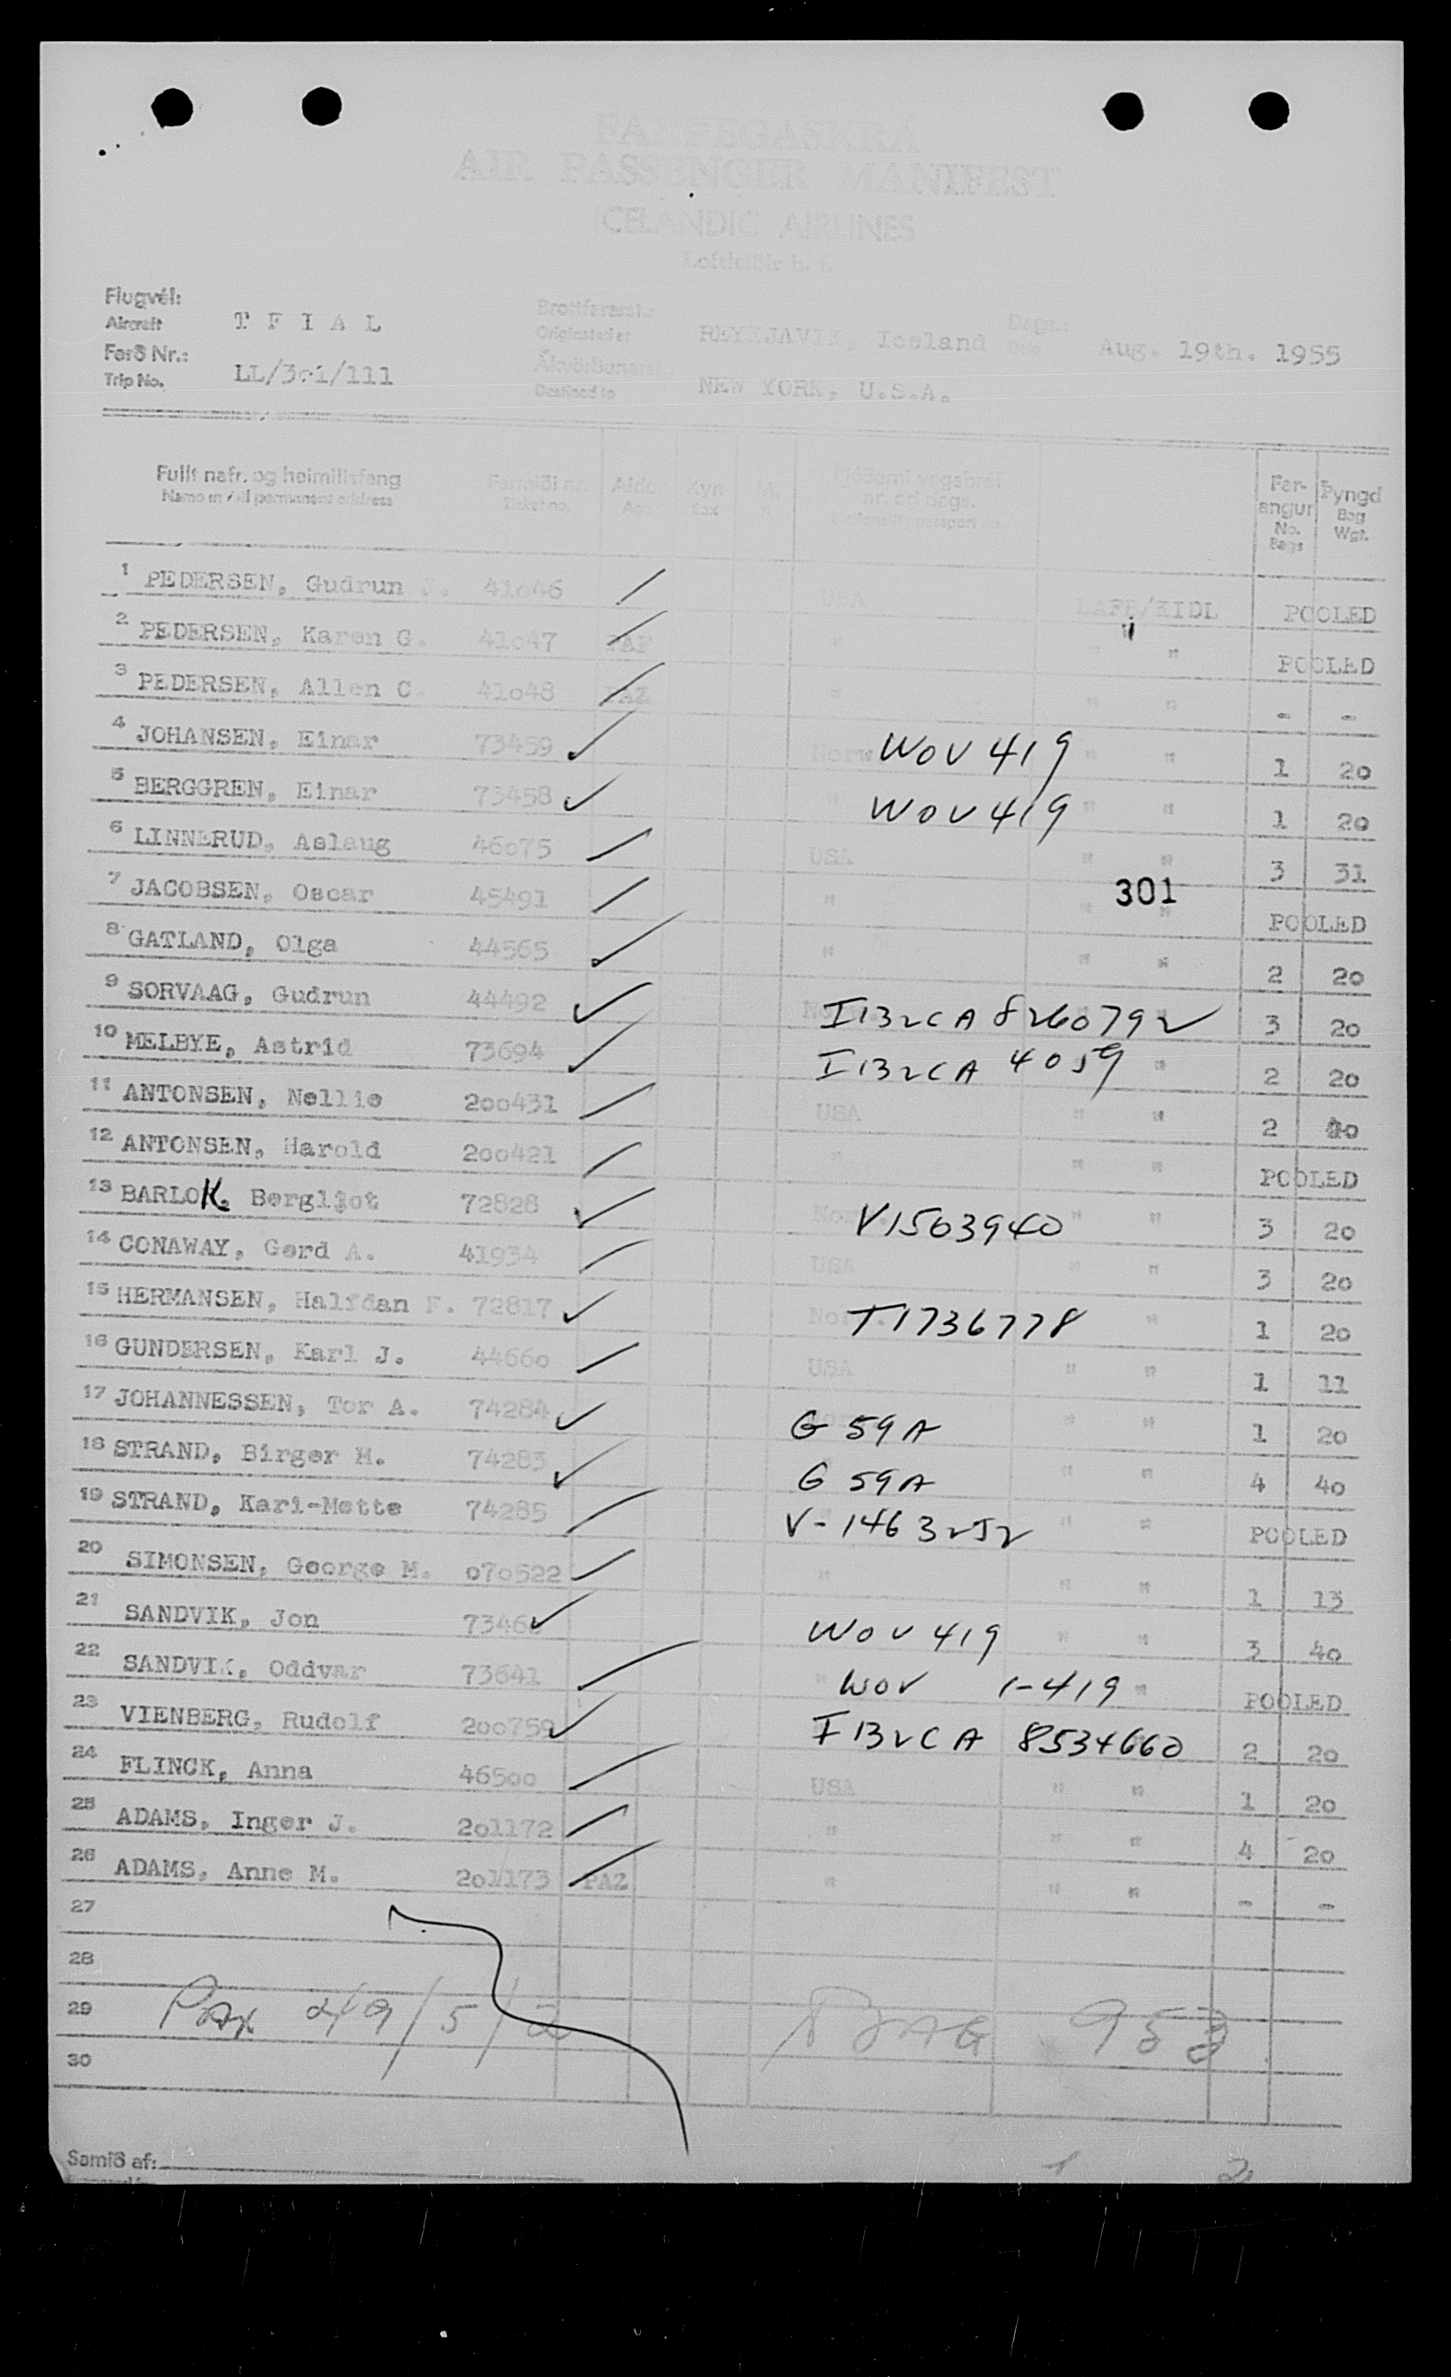 FARÞEGASKRÁ
AIR PASSENGER MANIFEST
ICELANDIC AIRLINES
Loftleiðir h. f.
Flugvél:
Aircraft T F I A L
Ferð Nr.:
Trip No. LL/3o1/111
REYKJAVIK, Iceland
NEW YORK, U.S.A.
Destined to
Aug. 19th. 1955
Fullt nafn og heimilisfang
Name in full permanent address
Farmiði nr.
Ticket no.
Kyn
Sex
Far-
angur
No.
Bags
Þyngd
Bag
Wgt.
1 PEDERSEN, Gudrun 41o46 USA LAFB/KIDL POOLED
2 PEDERSEN, Karen G. 41o47 " " " POOLED
3 PEDERSEN, Allen C. 41o48 PAZ " " " - -
4 JOHANSEN, Einar 73459 Norw WOV 419 " " 1 2o
5 BERGGREN, Einar 73458 " WOV 419 " " 1 2o
6 LINNERUD, Aslaug 46o75 USA " " 3 31
7 JACOBSEN, Oscar 45491 " 301 " " POOLED
8 GATLAND, Olga 44565 " " " 2 2o
9 SORVAAG, Gudrun 44492 I132CA 8260792 3 2o
10 MELBYE, Astrid 73694 I132CA 4059 " 2 2o
11 ANTONSEN, Nellie 2oo431 USA " " 2 4o
12 ANTONSEN, Harold 2oo421 " " " POOLED
13 BARLOK. Bergliot 72828 Nor V1503940 " " 3 2o
14 CONAWAY, Gerd A. 41934 USA " " 3 2o
15 HERMANSEN, Halfdan F. 72817 Nor T1736778 " 1 2o
16 GUNDERSEN, Karl J. 4466o USA " " 1 11
17 JOHANNESSEN, Tor A. 74284 G 59A " " 1 2o
18 STRAND, Birger M. 74283 G 59A " " 4 4o
19 STRAND, Kari-Mette 74285 V-1463252 " " POOLED
20 SIMONSEN, George M. o7o522 " " " 1 13
21 SANDVIK, Jon WOV 419 " " 3 4o
22 SANDVIK, Oddvar 73641 " WOV 1-419 " POOLED
23 VIENBERG, Rudolf 2oo759 I132CA 8534660 2 2o
24 FLINCK, Anna 465oo USA " " 1 2o
25 ADAMS, Inger J. 2o1172 " " " 4 2o
26 ADAMS, Anne M. 2o1173 PAZ " " " - -
27
28
29 Pax 49/5/2 BAG 953
30
Samið af:
1 2